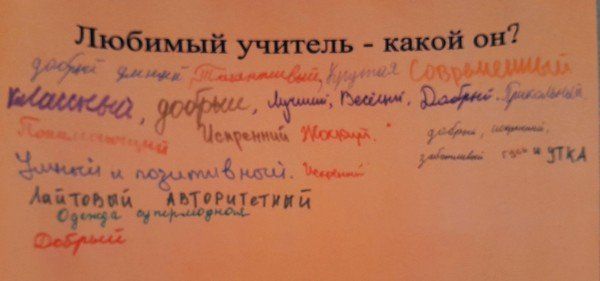 Любимый учитель - какой он?
добрый умный, Талантливый, Крутая Современный
классный, добрые, Лучший, Весёлый, Добрый. Прикольный
Понимающий Искренний Жжжут." добрый, искренний,
заботливый гуси и УТКА
Умный и позитивный. Искренний
ЛАЙТОВЫЙ АВТОРИТЕТНЫЙ
Одежда супермодная
Добрый